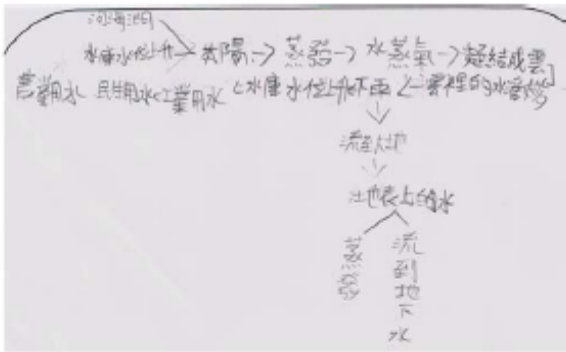 河海湖泊
水庫水位上升→太陽→蒸發→水蒸氣→凝結成雲
農業用水 民生用水 工業用水 ←水庫水位上升←下雨←雲裡的水
流到大地
土地表上的水
蒸發
流到地下水